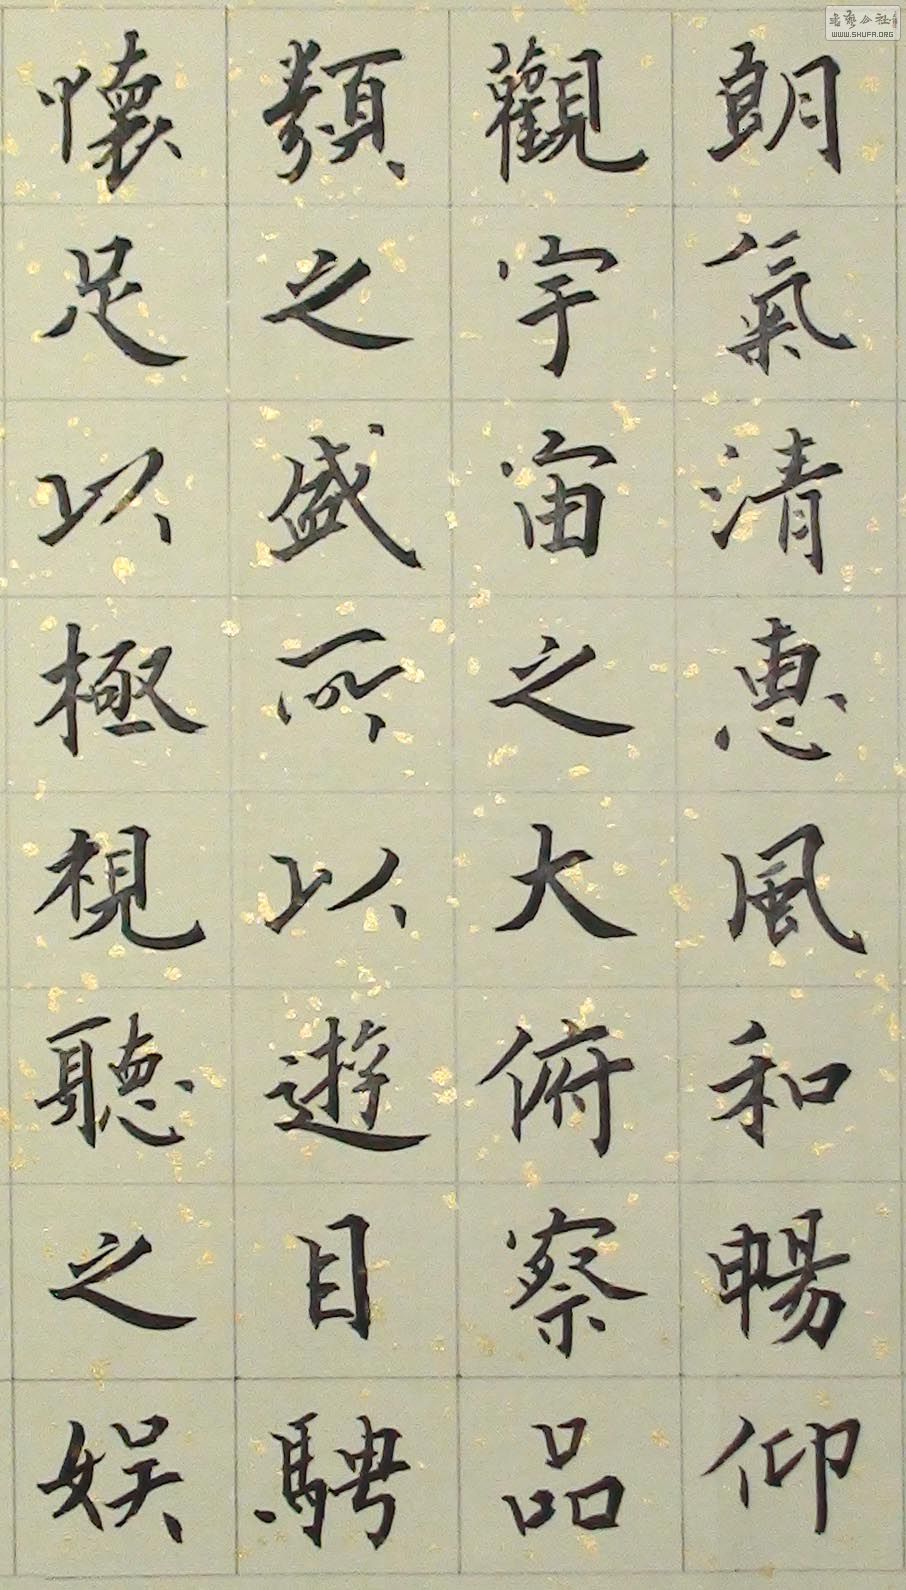 朗氣清惠風和暢仰
觀宇宙之大俯察品
類之盛所以遊目騁
懷足以極視聽之娛
書藝公社
WWW.SHUFA.ORG